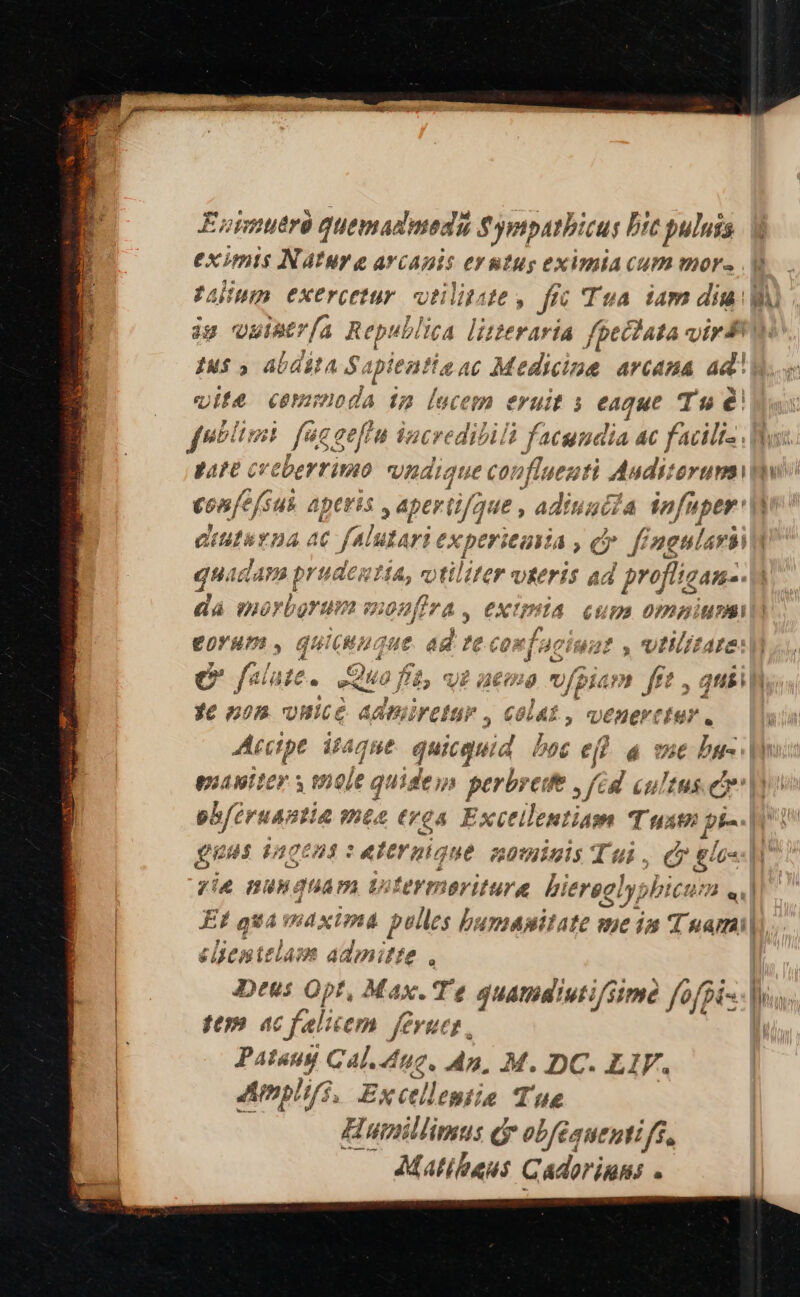 Enimuerò quemadmodũ Sympathicus hic puluis
eximis Naturæ arcanis erutus eximia cum mor-
talium exercetur vtilitate, sic Tua iam diu
in vniuersa Republica litteraria spectata vir-
tus, abdita Sapientiæ ac Medicinæ arcana ad
vitæ commoda in lucem eruit; eaque Tu è
sublimi suggestu incredibili facundia ac facili-
tate creberrimo vndique confluenti Auditorum
consessui aperis, apertisque, adiuncta insuper
diuturna ac salutari experientia, & singulari
quadam prudentia, vtiliter vteris ad profligan-
da morborum monstra, eximia cum omnium
eorum, quicunque ad te confugiunt, vtilitate
& salute. Quo fit, vt nemo vspiam sit, qui
te non vnicè admiretur, colat, veneretur.
Accipe itaque quicquid hoc est a me hu-
maniter; mole quidem perbreue, sed cultus &
obseruantiæ meæ erga Excellentiam Tuam pi-
gnus ingens: æternique nominis Tui, & glo-
riæ nunquam intermorituræ hieroglyphicum.
Et qua maxima polles humanitate me in Tuam
clientelam admitte.
Deus Opt. Max. Te quamdiutissimè sospi-
tem ac felicem seruet.
Patauij Cal. Aug. An. M. DC. LIV.
Ampliss. Excellentiæ Tuæ
Humillimus & obsequentiss.
Matthæus Cadorinus.